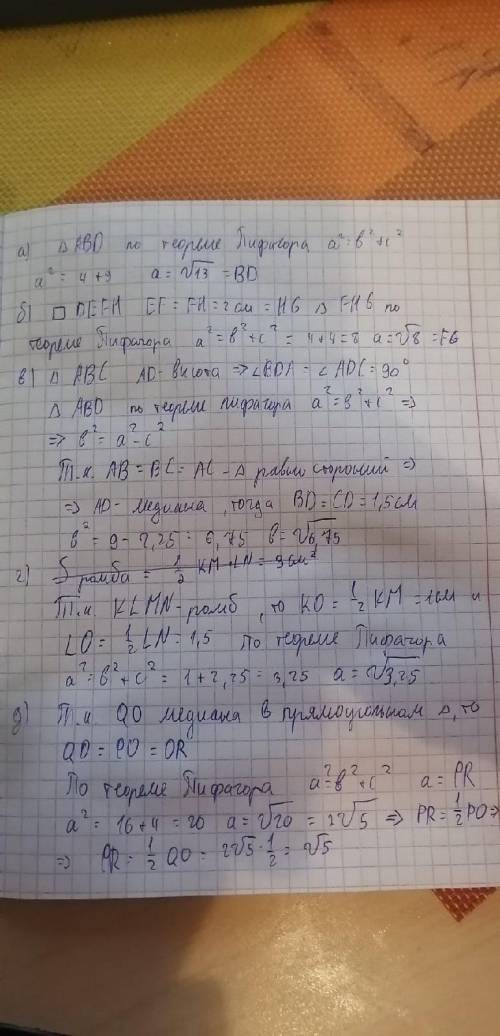 а) Δ ABD по теореме Пифагора a² = в² + c²
a² = 4 + 9 a = √13 = BD
б) □ DEFH EF = FH = 2 см = HG Δ FHG по
теореме Пифагора a² = в² + c² = 4 + 4 = 8 a = √8 = FG
в) Δ ABC AD - высота ⇒ ∠BDA = ∠ADC = 90°
Δ ABD по теореме пифагора a² = в² + c² ⇒
⇒ в² = a² - c²
Т.к. AB = BC = AC - Δ равносторонний ⇒
⇒ AD - медиана, тогда BD = CD = 1,5 см
в² = 9 - 2,25 = 6,75 в = √6,75
г) S ромба = 1/2 KM · LN = 3 см²
Т.к. KLMN - ромб, то KO = 1/2 KM = 1 см и
LO = 1/2 LN = 1,5 По теореме Пифагора
a² = в² + c² = 1 + 2,25 = 3,25 a = √3,25
д) Т.к. QO медиана в прямоугольном Δ, то
QO = PO = OR
По теореме Пифагора a² = в² + c² a = PR
a² = 16 + 4 = 20 a = √20 = 2√5 ⇒ PR = 1/2 PO ⇒
⇒ PR = 1/2 QO = 2√5 · 1/2 = √5